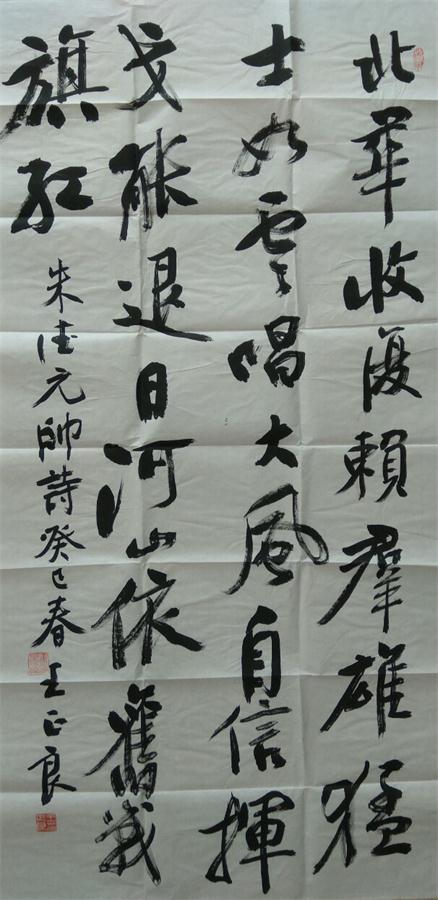 北華收復賴羣雄猛
士如雲唱大風自信揮
戈能退日河山依舊戰
旗紅
朱德元帥詩癸巳春王正良